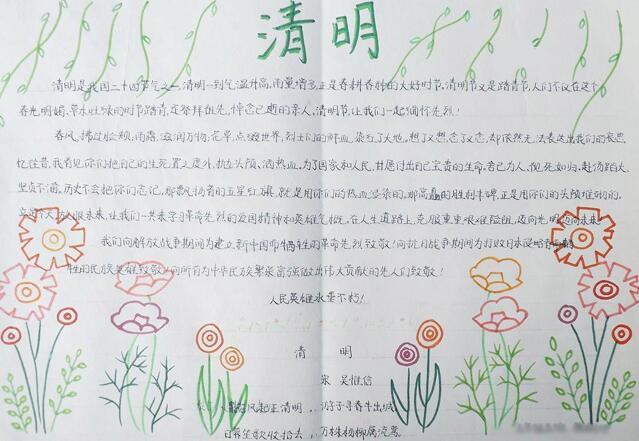 清明
清明是我国二十四节气之一,清明一到气温升高,雨量增多,正是春耕春种的大好时节.清明节又是踏青节,人们不仅在这个
春光明媚、草水吐绿的时节踏青,还祭拜祖先,悼念已逝的亲人,清明节,让我们一起缅怀先烈!
春风,拂过脸颊,雨露,滋润万物;花草,点缀世界,烈士们的鲜血,染红了大地,想了又想,念了又念,却依然无法表达出我们的哀思,
忆往昔,我看见,你们把自己的生死置之度外,抛头颅,洒热血,为了国家和人民,甘愿付出自己宝贵的生命.舍己为人,视死如归,赴汤蹈火,
坚贞不渝,历史不会把你们忘记,那飘扬着的五星红旗,就是用你们的热血浸染的,那高矗的胜利丰碑,正是用你们的头颅堆砌的.
立足今天,放眼未来,让我们一共来学习革命先烈的爱国精神和英雄气概,在人生道路上,克服重重艰难险阻,迈向光明
我们向解放战争期间为建立新中国而牺牲的革命先烈致敬!向抗日战争期间为打败日本侵略者而牺
牲的民族英雄致敬!向所有为中华民族繁荣富强做出伟大贡献的先人们致敬!
人民英雄永垂不朽!
清 明
宋 吴惟信
风起正清明,游子寻春半出城.
日暮笙歌收拾去,万株杨柳属流莺.